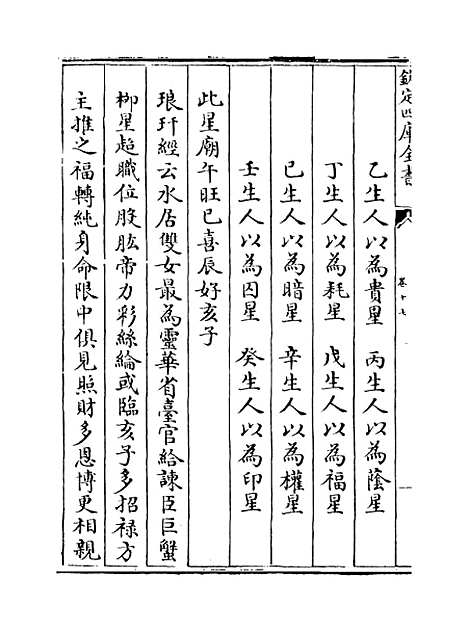 欽定四庫全書
卷十七
乙生人以為貴星　丙生人以為蔭星
丁生人以為耗星　戊生人以為福星
巳生人以為暗星　辛生人以為權星
壬生人以為囚星　癸生人以為印星
此星廟午旺巳喜辰好亥子
琅玕經云水居雙女最為靈華省臺官給諫臣巨蟹
栁星超職位股肱帝力彩絲綸或臨亥子多招禄方
主推之福轉純身命限中俱見照財多恩博更相親